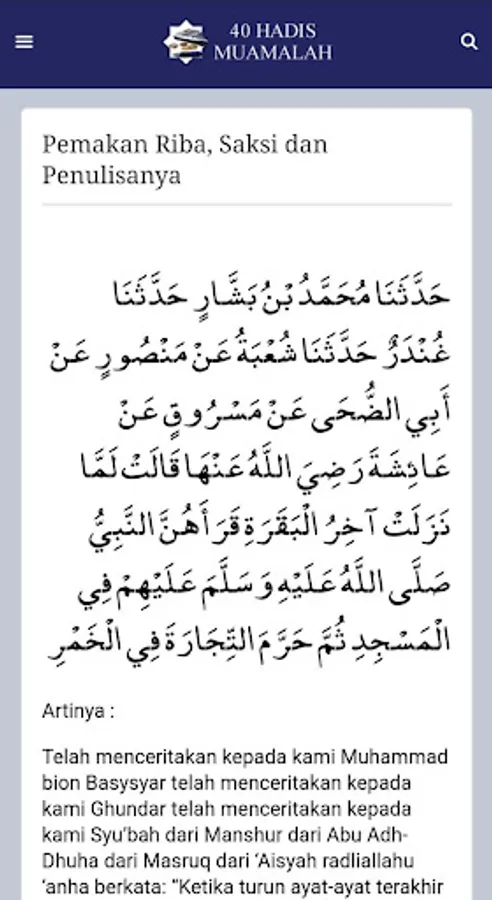 40 HADIS
MUAMALAH
Pemakan Riba, Saksi dan
Penulisanya
حَدَّثَنَا مُحَمَّدُ بْنُ بَشَّارٍ حَدَّثَنَا
غُنْدَرٌ حَدَّثَنَا شُعْبَةُ عَنْ مَنْصُورٍ عَنْ
أَبِي الضُّحَى عَنْ مَسْرُوقٍ عَنْ
عَائِشَةَ رَضِيَ اللَّهُ عَنْهَا قَالَتْ لَمَّا
نَزَلَتْ آخِرُ الْبَقَرَةِ قَرَأَهُنَّ النَّبِيُّ
صَلَّى اللَّهُ عَلَيْهِ وَسَلَّمَ عَلَيْهِمْ فِي
الْمَسْجِدِ ثُمَّ حَرَّمَ التِّجَارَةَ فِي الْخَمْرِ
Artinya :
Telah menceritakan kepada kami Muhammad
bion Basysyar telah menceritakan kepada
kami Ghundar telah menceritakan kepada
kami Syu'bah dari Manshur dari Abu Adh-
Dhuha dari Masruq dari 'Aisyah radliallahu
'anha berkata: "Ketika turun ayat-ayat terakhir